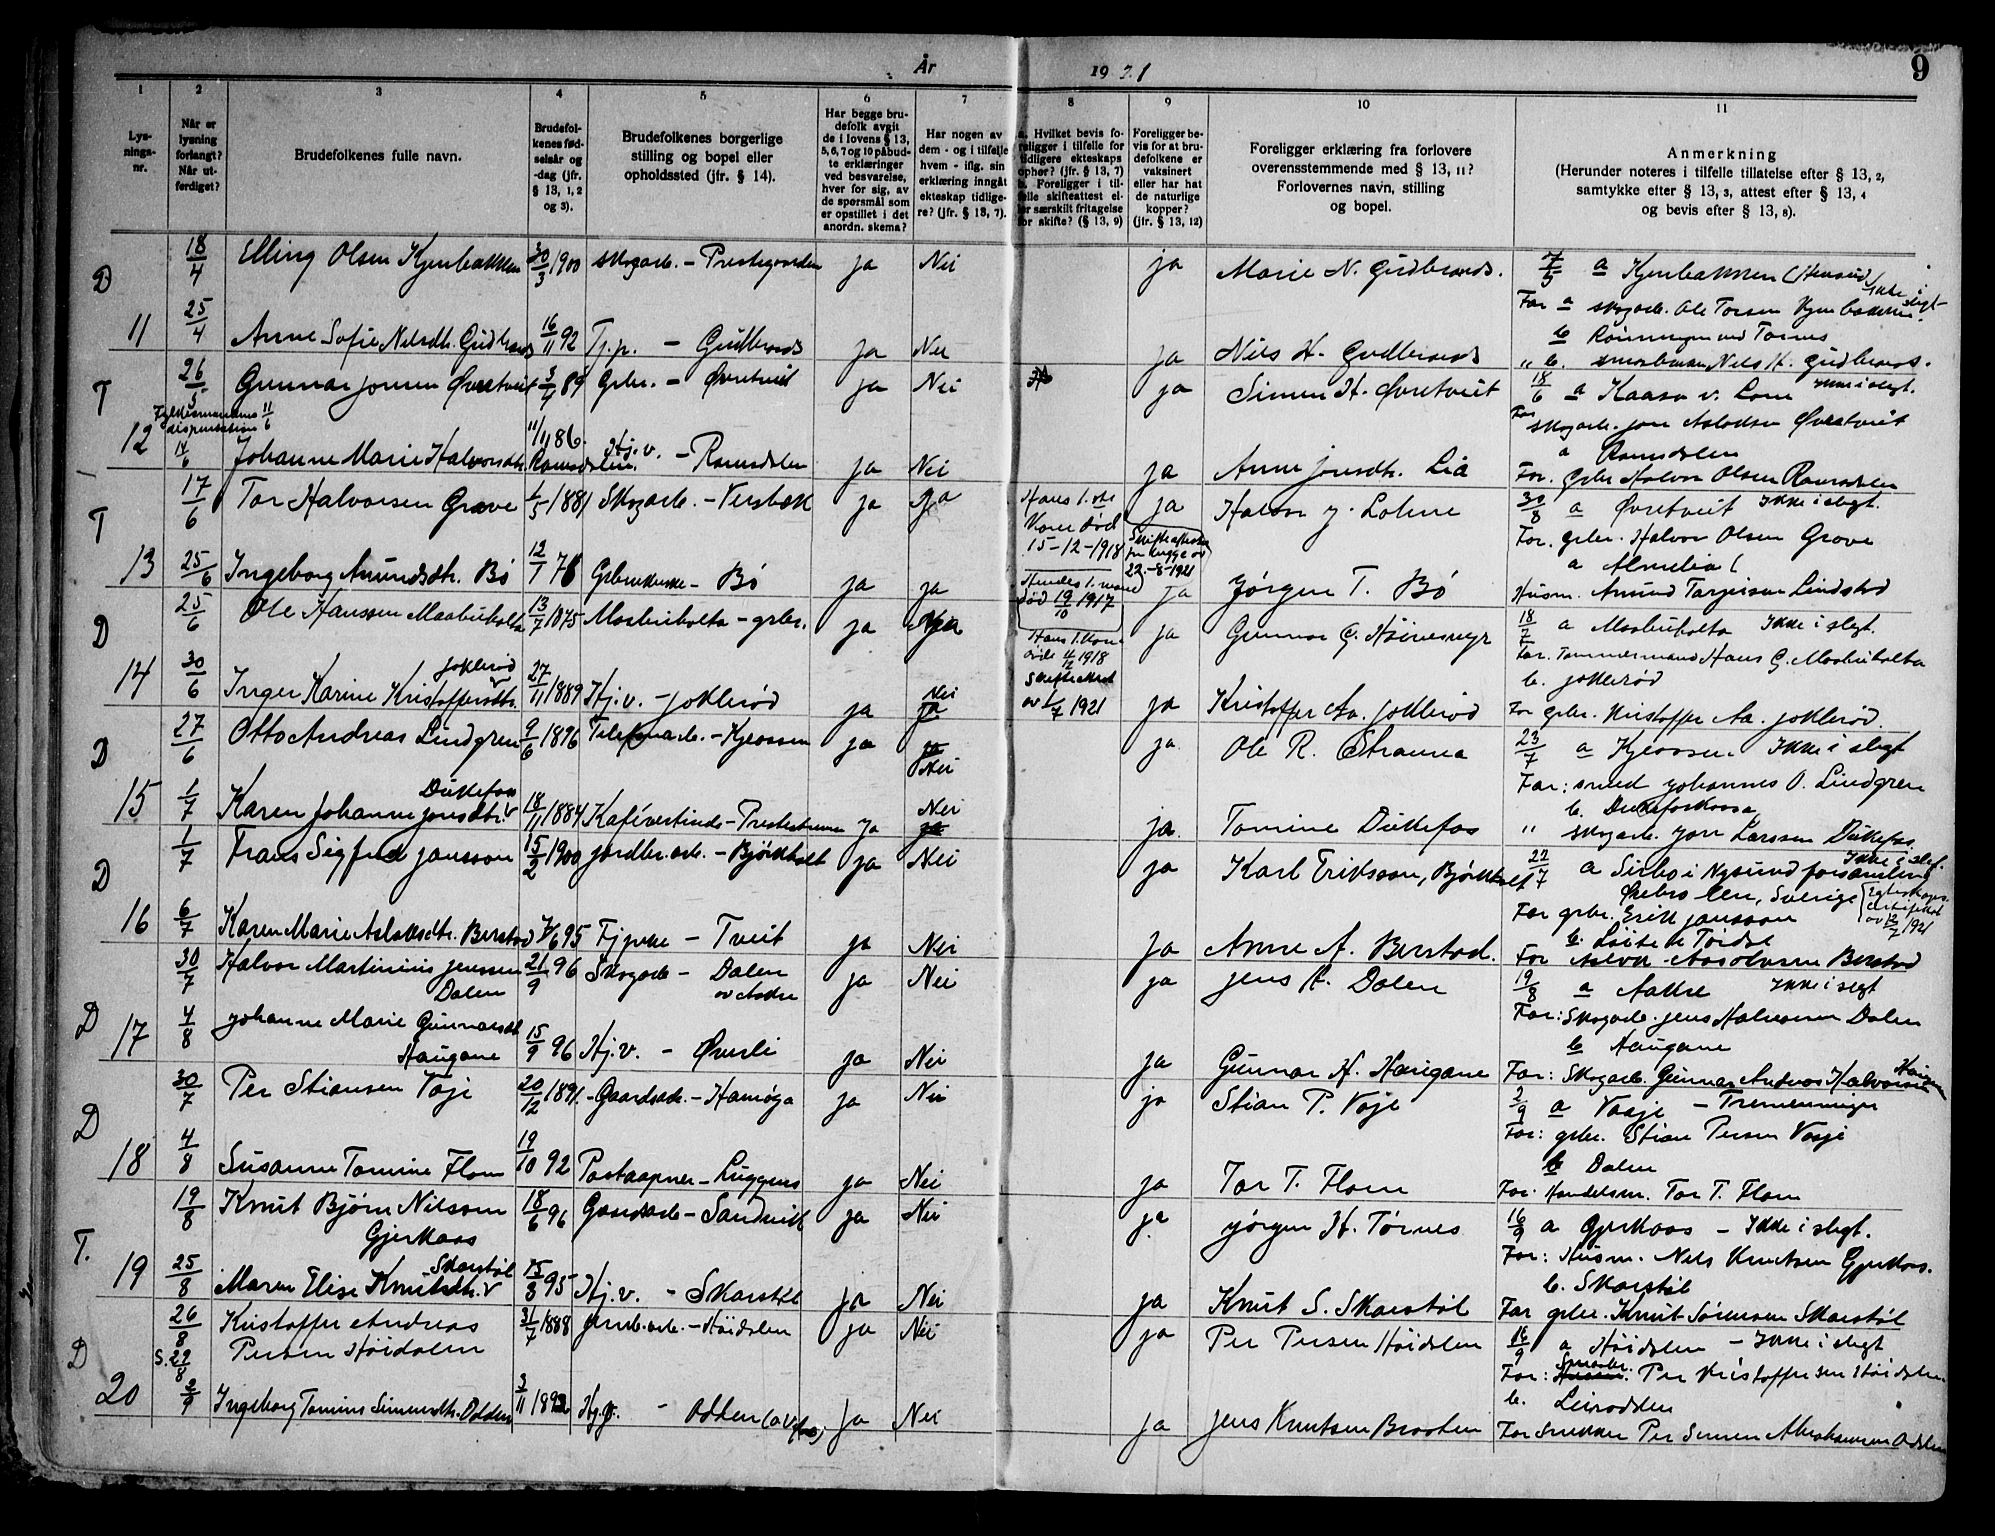 År 1921
9
1 2 3 4 5 6 7 8 9 10 11
Lys-
nings-
nr.
Når er
lysning
forlangt?
Når ut-
ferdiget?
Brudefolkenes fulle navn.
Brudefol-
kenes fød-
selsår og
-dag (jfr.
§ 13, 1, 2
og 3).
Brudefolkenes borgerlige
stilling og bopel eller
opholdssted (jfr. § 14).
Har begge bru-
defolk avgit
de i lovens § 13,
5, 6, 7 og 10 påbud-
te erklæringer
ved besvarelse,
hver for sig, av
de spørsmål som
er opstillet i det
anordn. skema?
Har nogen av
dem - og i tilfelle
hvem - iflg. sin
erklæring inngåt
ekteskap tidlige-
re? (jfr. § 13, 7).
a. Hvilket bevis fo-
religger i tilfelle for
tidligere ekteskaps
ophør? (jfr. § 13, 7)
b. Foreligger i til-
felle skifteattest el-
ler særskilt fritagelse
for skifte? (§ 13, 9)
Foreligger be-
vis for at bru-
defolkene er
vaksinert
eller har hat
de naturlige
kopper?
(jfr. § 13, 12)
Foreligger erklæring fra forlovere
overensstemmende med § 13, 11?
Forlovernes navn, stilling
og bopel.
Anmerkning
(Herunder noteres i tilfelle tillatelse efter § 13, 2,
samtykke efter § 13, 3, attest efter § 13, 4
og bevis efter § 13, 8).
D 18/4 Elling Olsen Kjenbakken 30/3 1900 skogarb. - Prestegaarden ja Nei ja Marie N. Gudbrands. 7/5 a Kjenbakken
Ikke i slegt
For a skogarb. Ole Torsen Kjenbakken
11 25/4 Anne Sofie Nilsdtr. Gudbrands 16/11 92 Tj.p. - Gudbrands ja Nei ja Nils H. Gudbrands
b Rønningen ved Tornes
" b. Nils H. Gudbrands.
T 26/5 Gunnar Jonsen Øvretveit 3/4 89 Grbr. - Øvretveit ja Nei ja Simen H. Øvretveit 18/6 a Kaasa v. Lone Ikke i slegt.
Fylkesmandens
dispensation 11/6
For skogarb. Jon Aslaksen Øvretveit
12 14/6 Johanne Marie Halvorsdtr. Ramsdalen. 11/11 86. Hj.v. - Ramsdalen ja Nei ja Anne Jonsdtr. Lia
a Ramsdalen
For. Grbr. Halvor Olsen Ramsdalen
T 17/6 Tor Halvorsen Grave 1/5 1881 Skogarb. - Versbæk ja Ja Hans 1.ste Kone død 15-12-1918 ja Halvor J. Lohne 30/8 a Øvretveit Ikke i slegt.
For. grbr. Halvor Olsen Grave
Skifteattest
22-8-1921
13 25/6 Ingeborg Amundsdtr. Bø 12/1 76 Grbr.enke - Bø ja ja Hendes 1. mand død 19/10 1917 ja Jørgen T. Bø
a Almelia
Husm. Amund Tarjeisen Lindstad
D 25/6 Ole Hanssen Maabuholta 13/7 1875 Maabuholta - grbr. ja Ja Hans 1. kone døde 4/12 1918 ja Gunnar G. Høinesmyr 18/7 a Maabuholta Ikke i slegt.
For. Tømmermand Hans G. Maabuholta
14 30/6 Inger Karine Kristoffersdtr. Joklerød 27/11 1889 Hj.v. - Joklerød ja Nei ja Skifteattest av 1/7 1921 ja Kristoffer Aa. Joklerød
b. Joklerød
For grbr. Kristoffer Aa. Joklerød.
D 27/6 Otto Andreas Lindgren 9/6 1896 Telefonarb. - Kjeossen ja ja Nei ja Ole R. Stranna 23/7 a Kjeossen. Ikke i slegt
For: smed Johannes O. Lindgren
15 1/7 Karen Johanne Jonsdtr. Dukefos 18/11 1884 Kafévertinde - Prestestranna ja Nei ja ja. Tomine Dukefos
b. Dukefoskaasa
" skogarb. Jon Larssen Dukefos.
D 1/7 Frans Sigfrid Jansson 15/2 1900 Jordbr.arb. - Bjørkholt ja Nei ja Karl Eriksson, Bjørkholt 22/7 a Sirbo i Nysund forsamling Ikke i slegt.
Ørebro len, Sverige
For grbr. Erik Jansson
16 6/7 Karen Marie Aslaksdtr. Berstad 7/6 95 Tjpike - Tveit ja Nei ja Anne A. Berstad.
For Aslak Berstad
30/7 Halvor Martinius Jenssen Dalen 21/9 96 Skogarb - Dalen ja Nei ja Jens H. Dalen 19/8 a Aakre Ikke i slegt
For: Skogarb. Jens Halvorsen Dalen
D 17 4/8 Johanne Marie Gunnarsdtr Haugane 15/9 96 Hj.v. - Øverli ja Nei ja Gunnar H. Haugane
b Haugane
For: Skogarb. Gunnar Andreas Halvorsen Haugane
D 30/7 Per Stiansen Vaje 20/12 1891. - Gaardsarb. - Hamøya ja Nei ja Stian P. Vaje 2/9 a Vaaje - Tremenninger
For: grbr. Stian Persen Vaaje
18 4/8 Susanne Tomine Flom 19/10 92 Postaapner - Luggens ja Nei ja Tor T. Flom
b Dalen
For. Handelsm. Tor T. Flom
T. 19/8 Knut Bjørn Nilssen Gjerkaas 18/6 96 Gaardsarb - Sandvik ja Nei ja Jørgen H. Tørnes 16/9 a Gjerkaas - Ikke i slegt.
For: Husm. Nils Knutsen Gjerkaas.
19 25/8 Maren Elise Knutsdtr. Skarstøl 15/8 95 Hj.v. - Skarstøl ja Nei ja Knut S. Skarstøl
b. Skarstøl
For grbr. Knut Sørensen Skarstøl
D 26/8 Kristoffer Andreas Persen Høidalen 31/7 1888 Jernb.arb. - Høidalen ja Nei ja Per Persen Høidalen 16/9 a Høidalen - Ikke i slegt
S. 29/8
For: Per Kristoffersen Høidalen
20 2/9 Ingeborg Tomine Simensdtr. Odden 3/11 1892 Hj.v. - Odden ja Nei ja Jens Knutsen Braaten
b. Leirodden
For Snekker